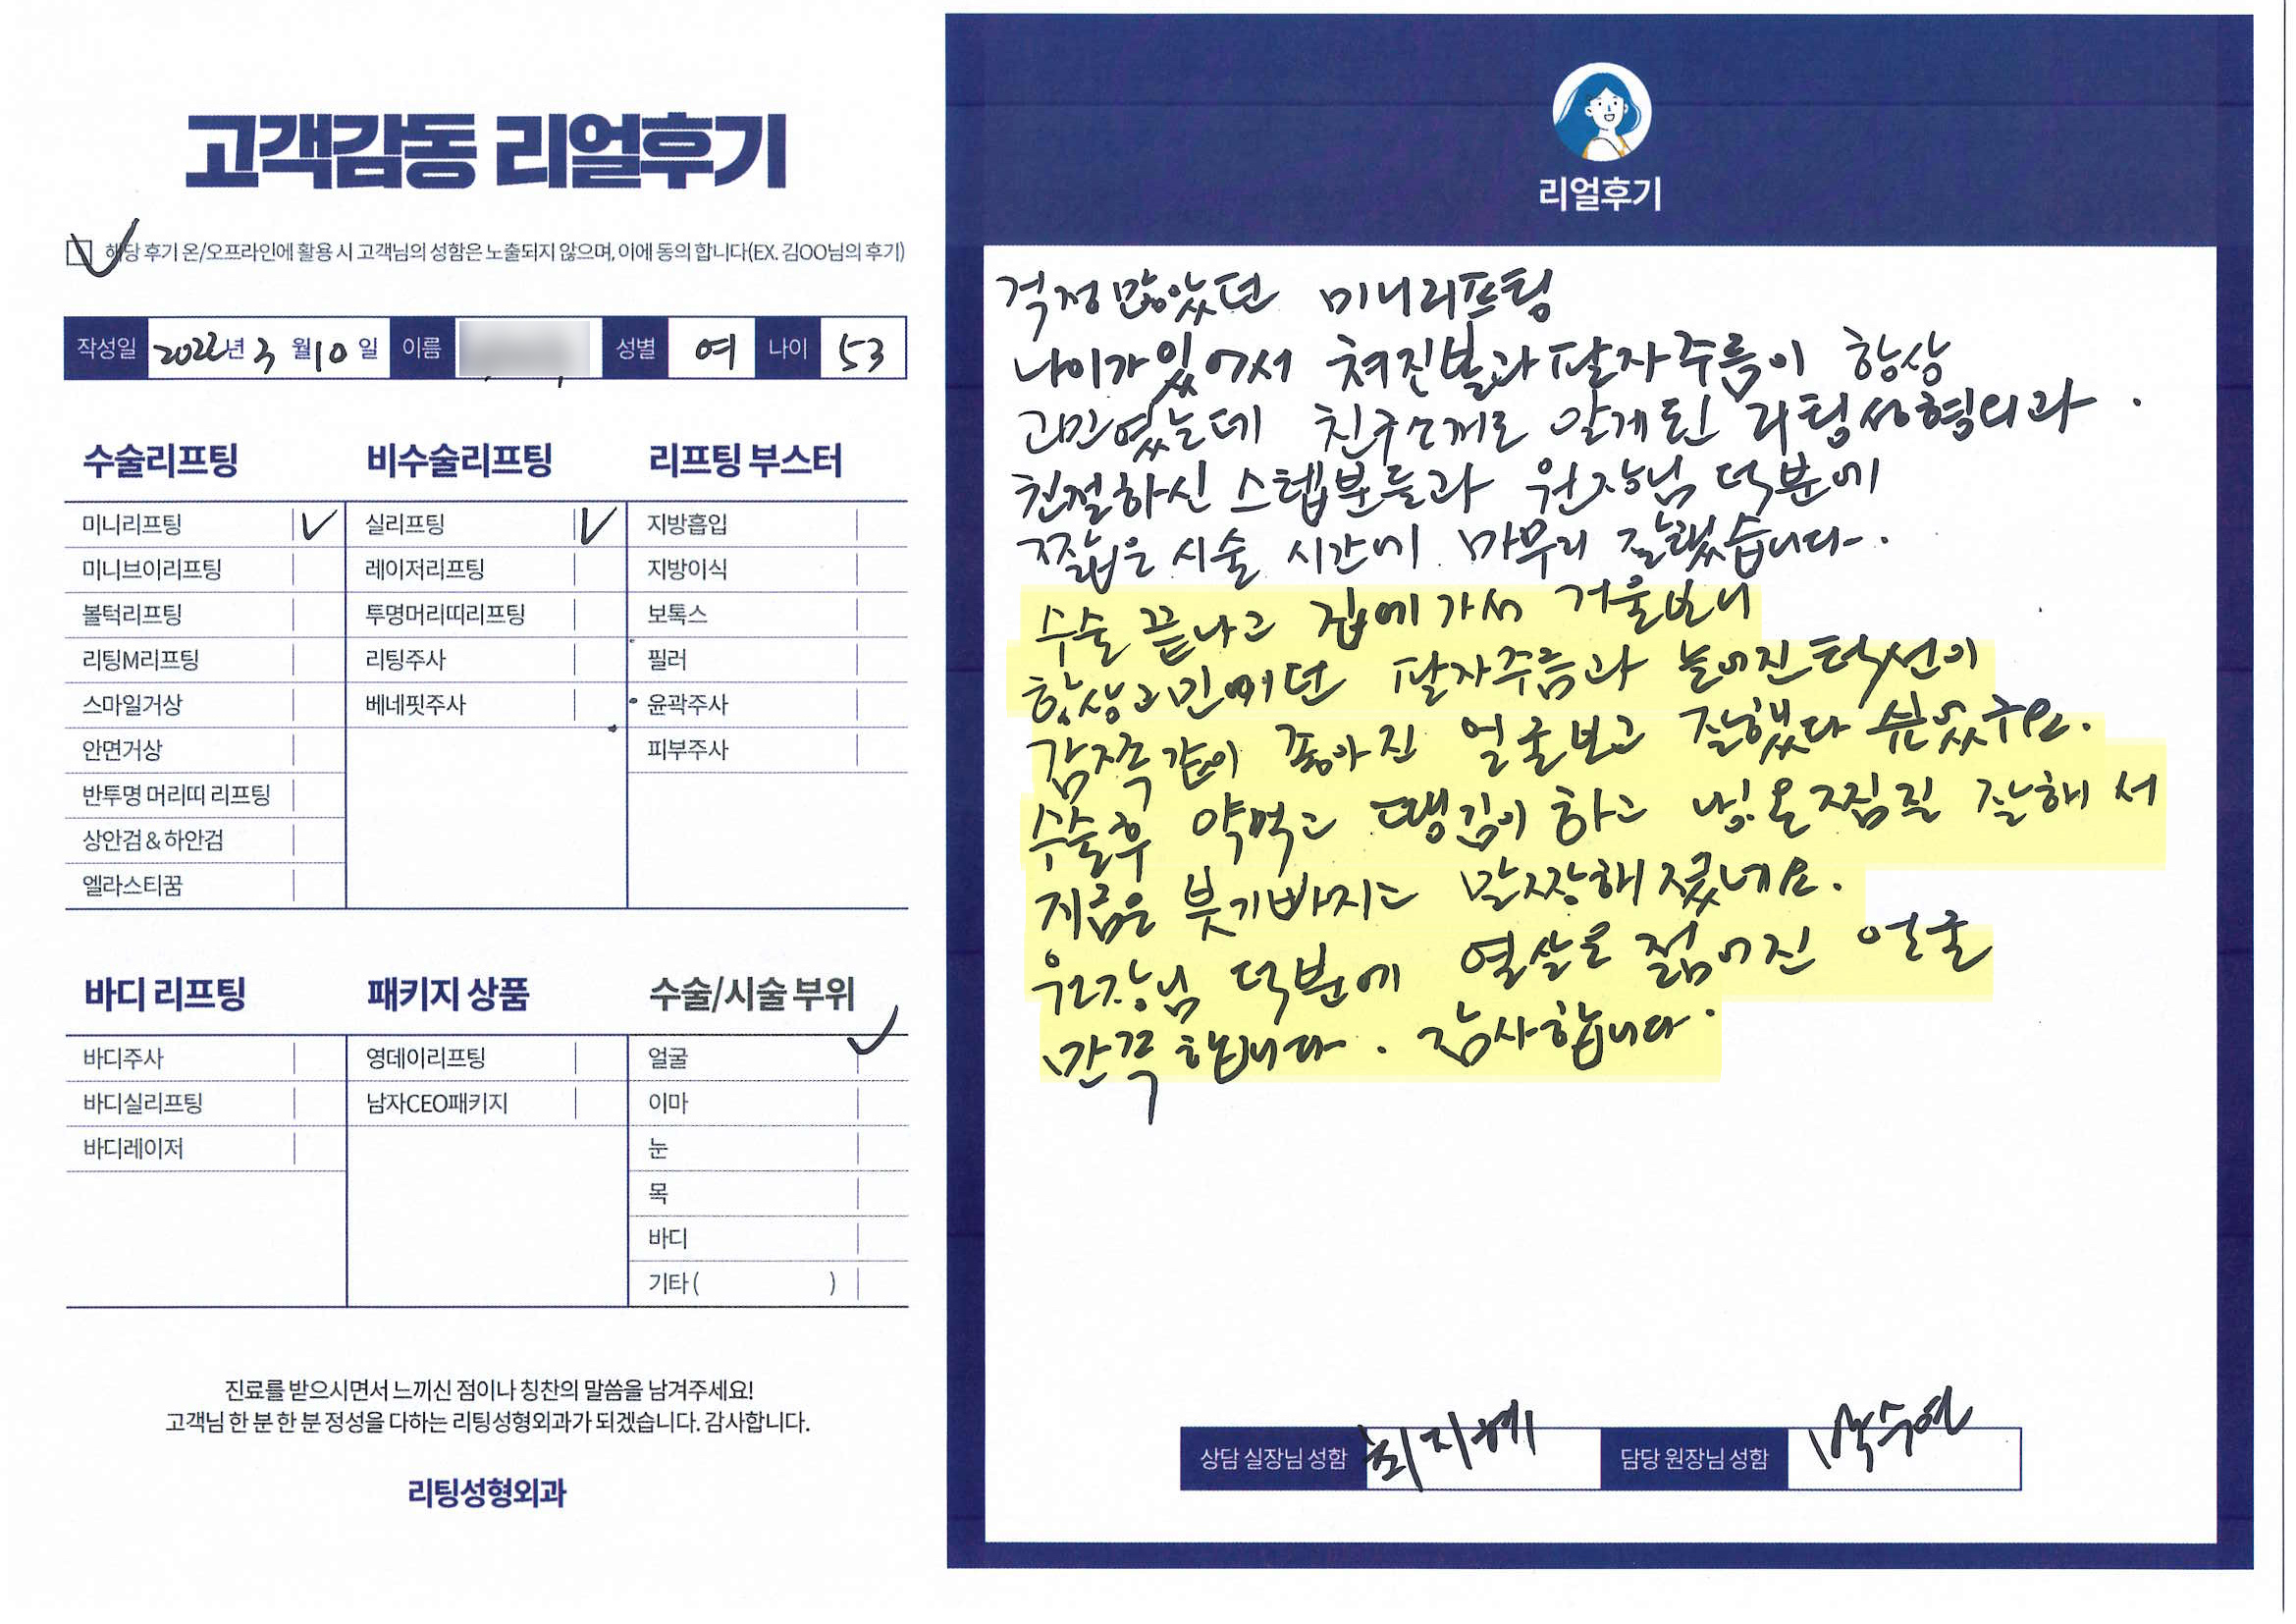 고객감동 리얼후기
해당 후기 온/오프라인에 활용 시 고객님의 성함은 노출되지 않으며, 이에 동의 합니다(EX. 김OO님의 후기)
작성일 2022년 3월 10일 이름 성별 여 나이 53
수술리프팅 비수술리프팅 리프팅 부스터
미니리프팅 실리프팅 지방흡입
미니브이리프팅 레이저리프팅 지방이식
볼턱리프팅 투명머리띠리프팅 보톡스
리팅M리프팅 리팅주사 필러
스마일거상 베네핏주사 윤곽주사
안면거상 피부주사
반투명 머리띠 리프팅
상안검 & 하안검
엘라스티꿈
바디 리프팅 패키지 상품 수술/시술 부위
바디주사 영데이리프팅 얼굴
바디실리프팅 남자CEO패키지 이마
바디레이저 눈
목
바디
기타 ( )
진료를 받으시면서 느끼신 점이나 칭찬의 말씀을 남겨주세요!
고객님 한 분 한 분 정성을 다하는 리팅성형외과가 되겠습니다. 감사합니다.
리팅성형외과
리얼후기
걱정많았던 미니리프팅
나이가있어서 쳐진볼과 팔자주름이 항상
고민였는데 친구소개로 알게된 리팅성형외과.
친절하신 스텝분들과 원장님 덕분에
짧은 시술 시간에 마무리 잘했습니다.
수술 끝나고 집에가서 거울보니
항상고민이던 팔자주름과 늘어진턱선이
감쪽같이 좋아진 얼굴보고 잘했다 싶었구요.
수술후 약먹고 땡김이하고 냉.온찜질 잘해서
지금은 붓기빠지고 말짱해졌네요.
원장님 덕분에 열살은 젊어진 얼굴
만족합니다. 감사합니다.
상담 실장님 성함 최지혜 담당 원장님 성함 박수연